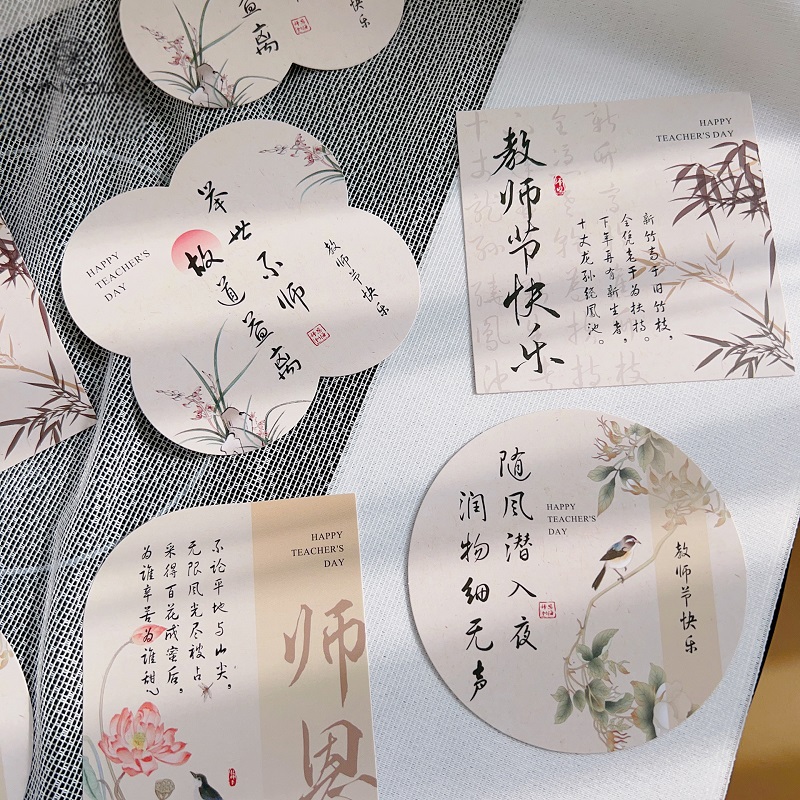 离
快乐
举世不师
故道益离
HAPPY
TEACHER'S
DAY
教师节快乐
HAPPY
TEACHER'S DAY
教师节快乐
新竹高于旧竹枝，
全凭老干为扶持。
下年再有新生者，
十丈龙孙绕凤池。
HAPPY
TEACHER'S
DAY
不论平地与山尖，
无限风光尽被占，
采得百花成蜜后，
为谁辛苦为谁甜。
师恩
随风潜入夜
润物细无声
HAPPY
TEACHER'S
DAY
教师节快乐